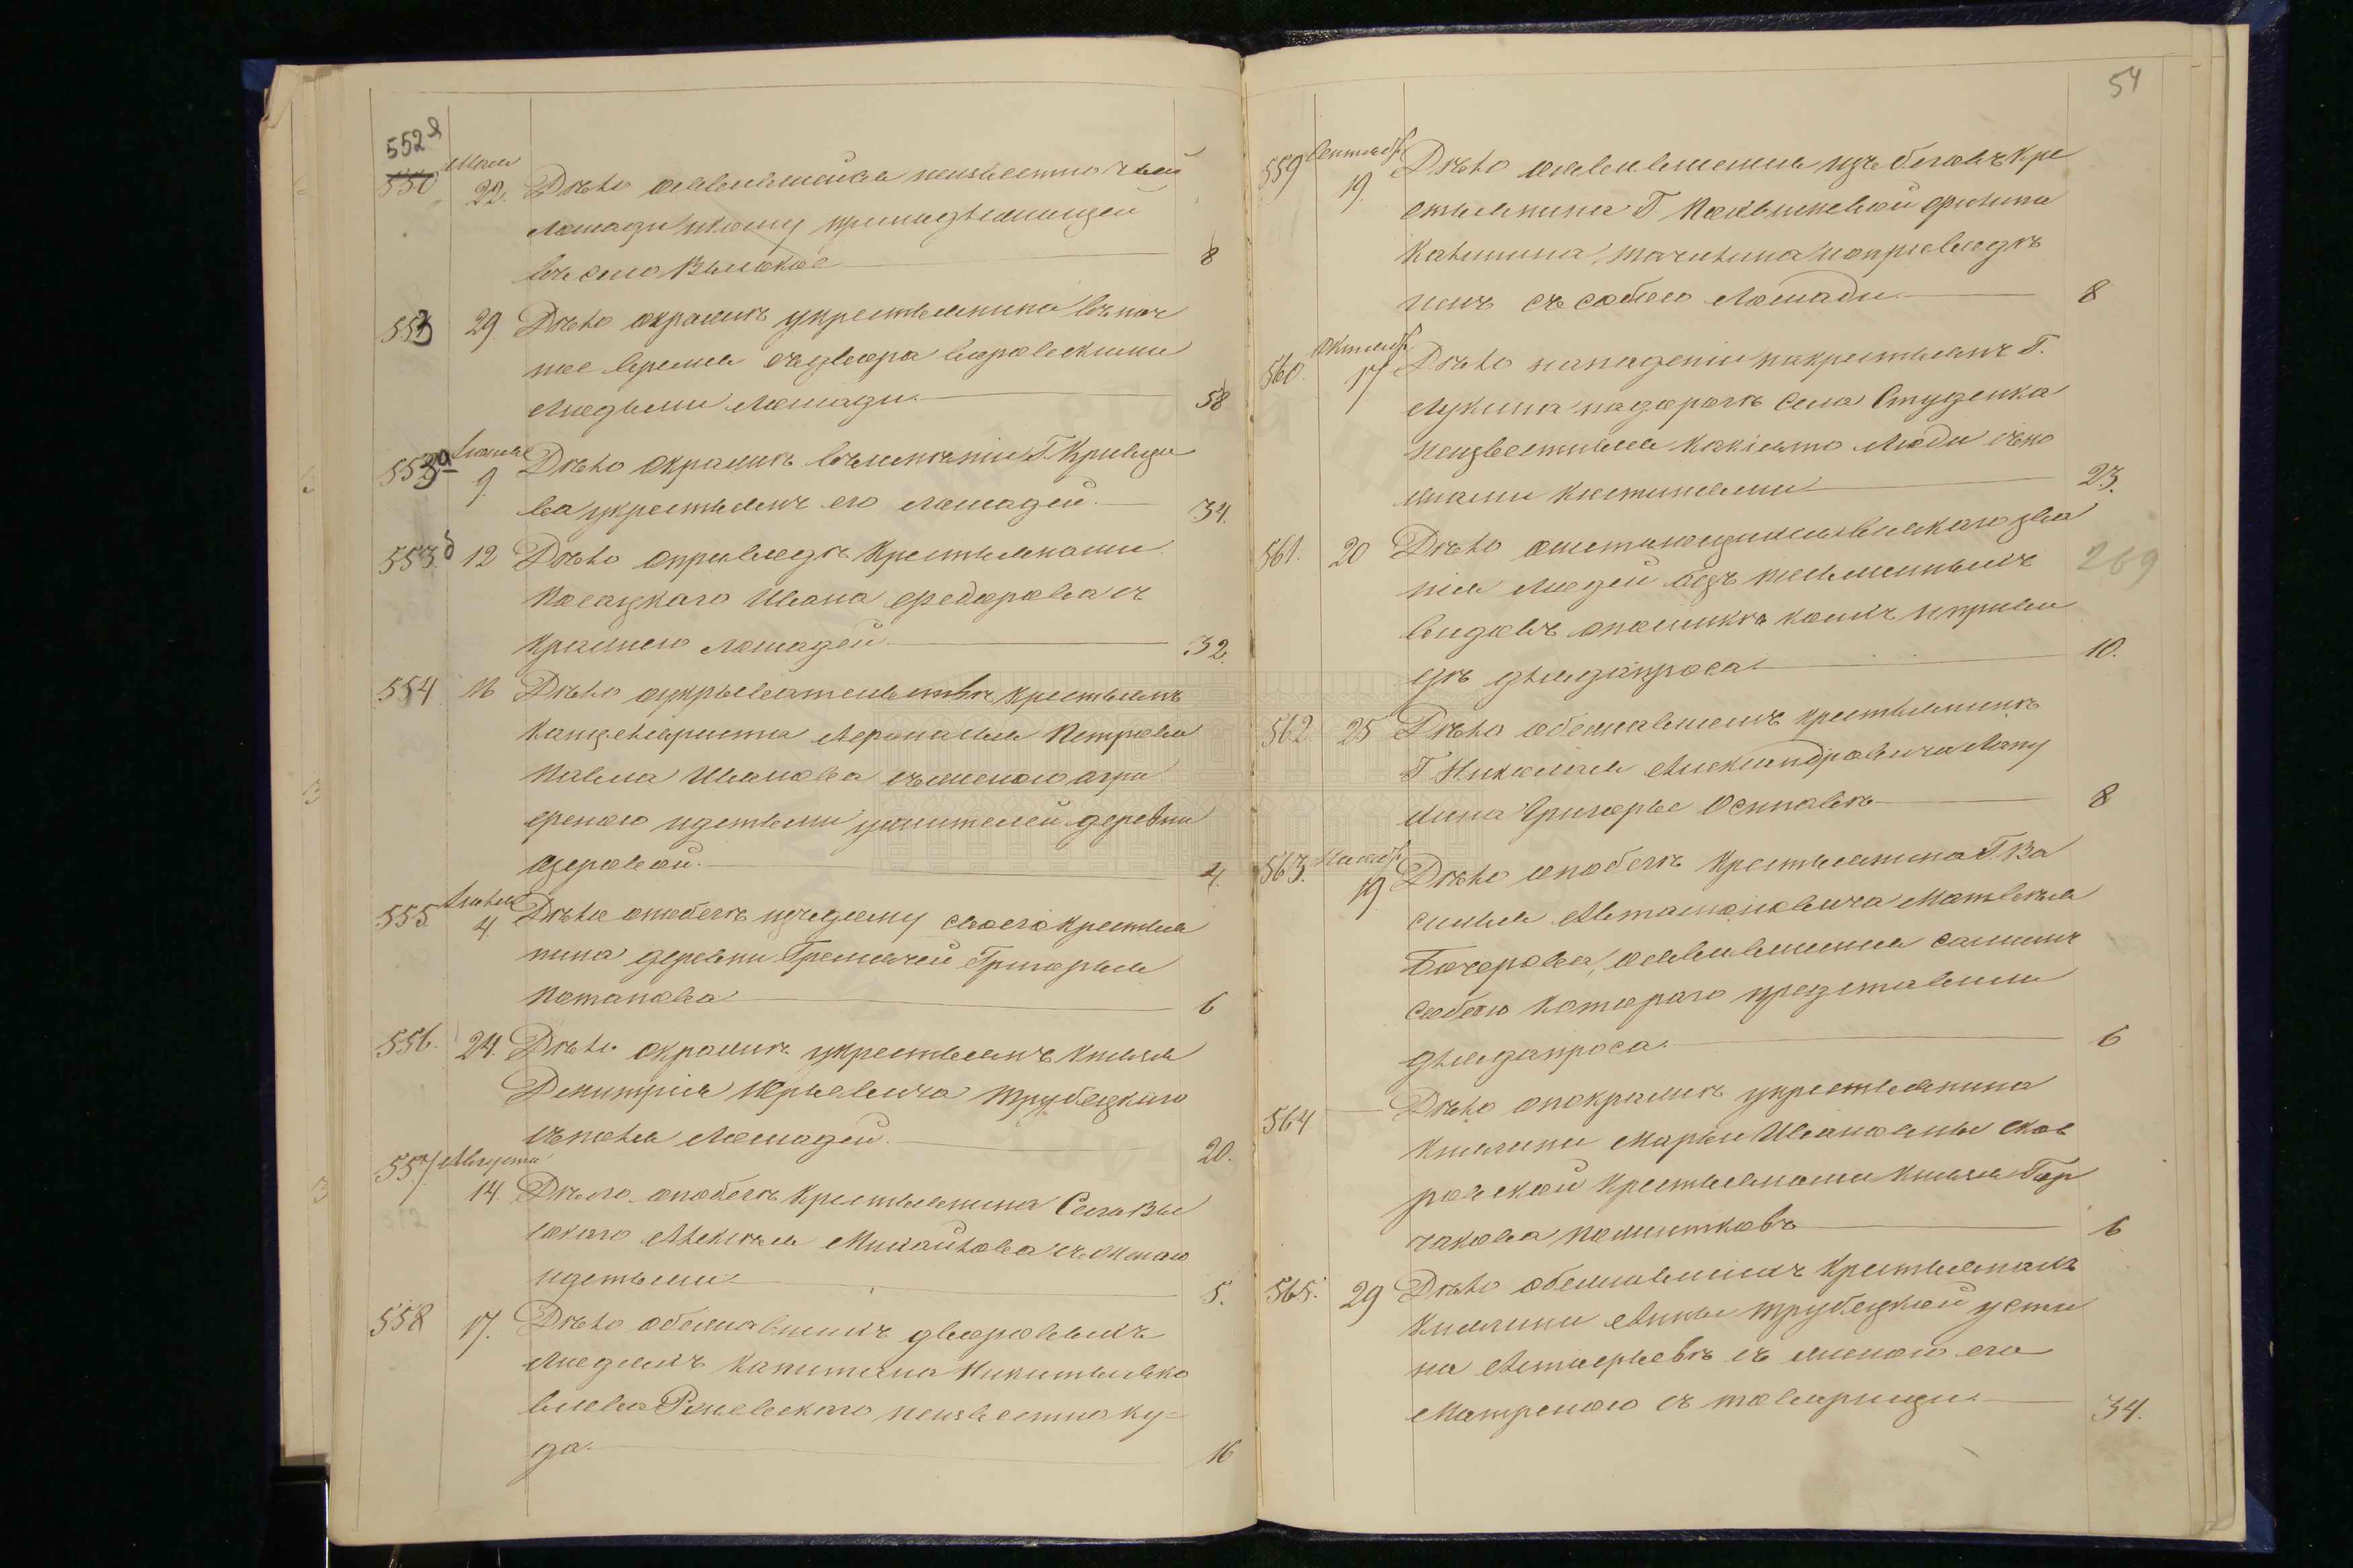 552а
550 Мая 22. Дѣло о явившейся неизвестно чьей
лошади и кому принадлежащей
въ село Высокое 8
553 29 Дѣло о кражѣ у крестьянина въ ноч
ное время съ двора воровскими
людьми лошади. 58
553а Іюня 9. Дѣло о кражѣ въ имѣніи Г. Кривцо
ва у крестьянъ его лошадей. 34.
553.б 12 Дѣло о приводѣ крестьянами
Косацкаго Ивана Федорова съ
кражею лошадей. 32.
554 16 Дѣло о укрывательствѣ крестьянъ
канцеляриста Петрова
Павла Иванова съ женою Агри
феною и детьми у жителей деревни
Озеровой. 4.
555 Іюля 4 Дѣло о побегѣ изъ дому своего крестья
нина деревни Гремячей Григорья
Потапова 6
556. 24. Дѣло о кражѣ у крестьянъ Князя
Дмитрія Юрьевича Трубецкаго
съ поля лошадей. 20.
557 Августа
14. Дѣло о побегѣ крестьянина Села Вы
сокаго Алексѣя Михайлова съ женою
и детьми 5.
558 17. Дѣло о бежавшихъ дворовыхъ
людяхъ Капитана Никиты Яко
влева Ржевскаго неизвестно ку-
да. 16
54
559 Сентября 19. Дѣло о явившемся изъ беговъ кре
стьянина Г. Филипа
Калинина и о приводѣ
имъ съ собою лошади. 8
560. Октября 17 Дѣло о нападеніи на крестьянъ Г.
Лукина на дорогѣ Села Студенка
неизвестныя какіе то люди съ но
жами и кистенями 23.
561. 20 Дѣло
нія людей безъ письменныхъ
видовъ о поимкѣ коихъ и приво
дѣ для допроса. 10.
269
562 25 Дѣло о бежавшемъ крестьянинѣ
Г. Николая Александровича Лапу
хина Григорье Осиповѣ 8
563. Ноября 19 Дѣло о побегѣ крестьянина Г. Ва
силья Автамоновича Матвѣя
Бочерова, и о явившимся самимъ
собою котораго представили
для допроса. 6
564 — Дѣло о покражѣ у крестьянина
Княгини Марьи Ивановны
крестьянами Князя Гор
чакова пожитковъ 6
565. 29 Дѣло о бежавшихъ крестьянахъ
Княгини Анны Трубецкой Усти
на съ женою его
Матреною съ товарищи. 34.